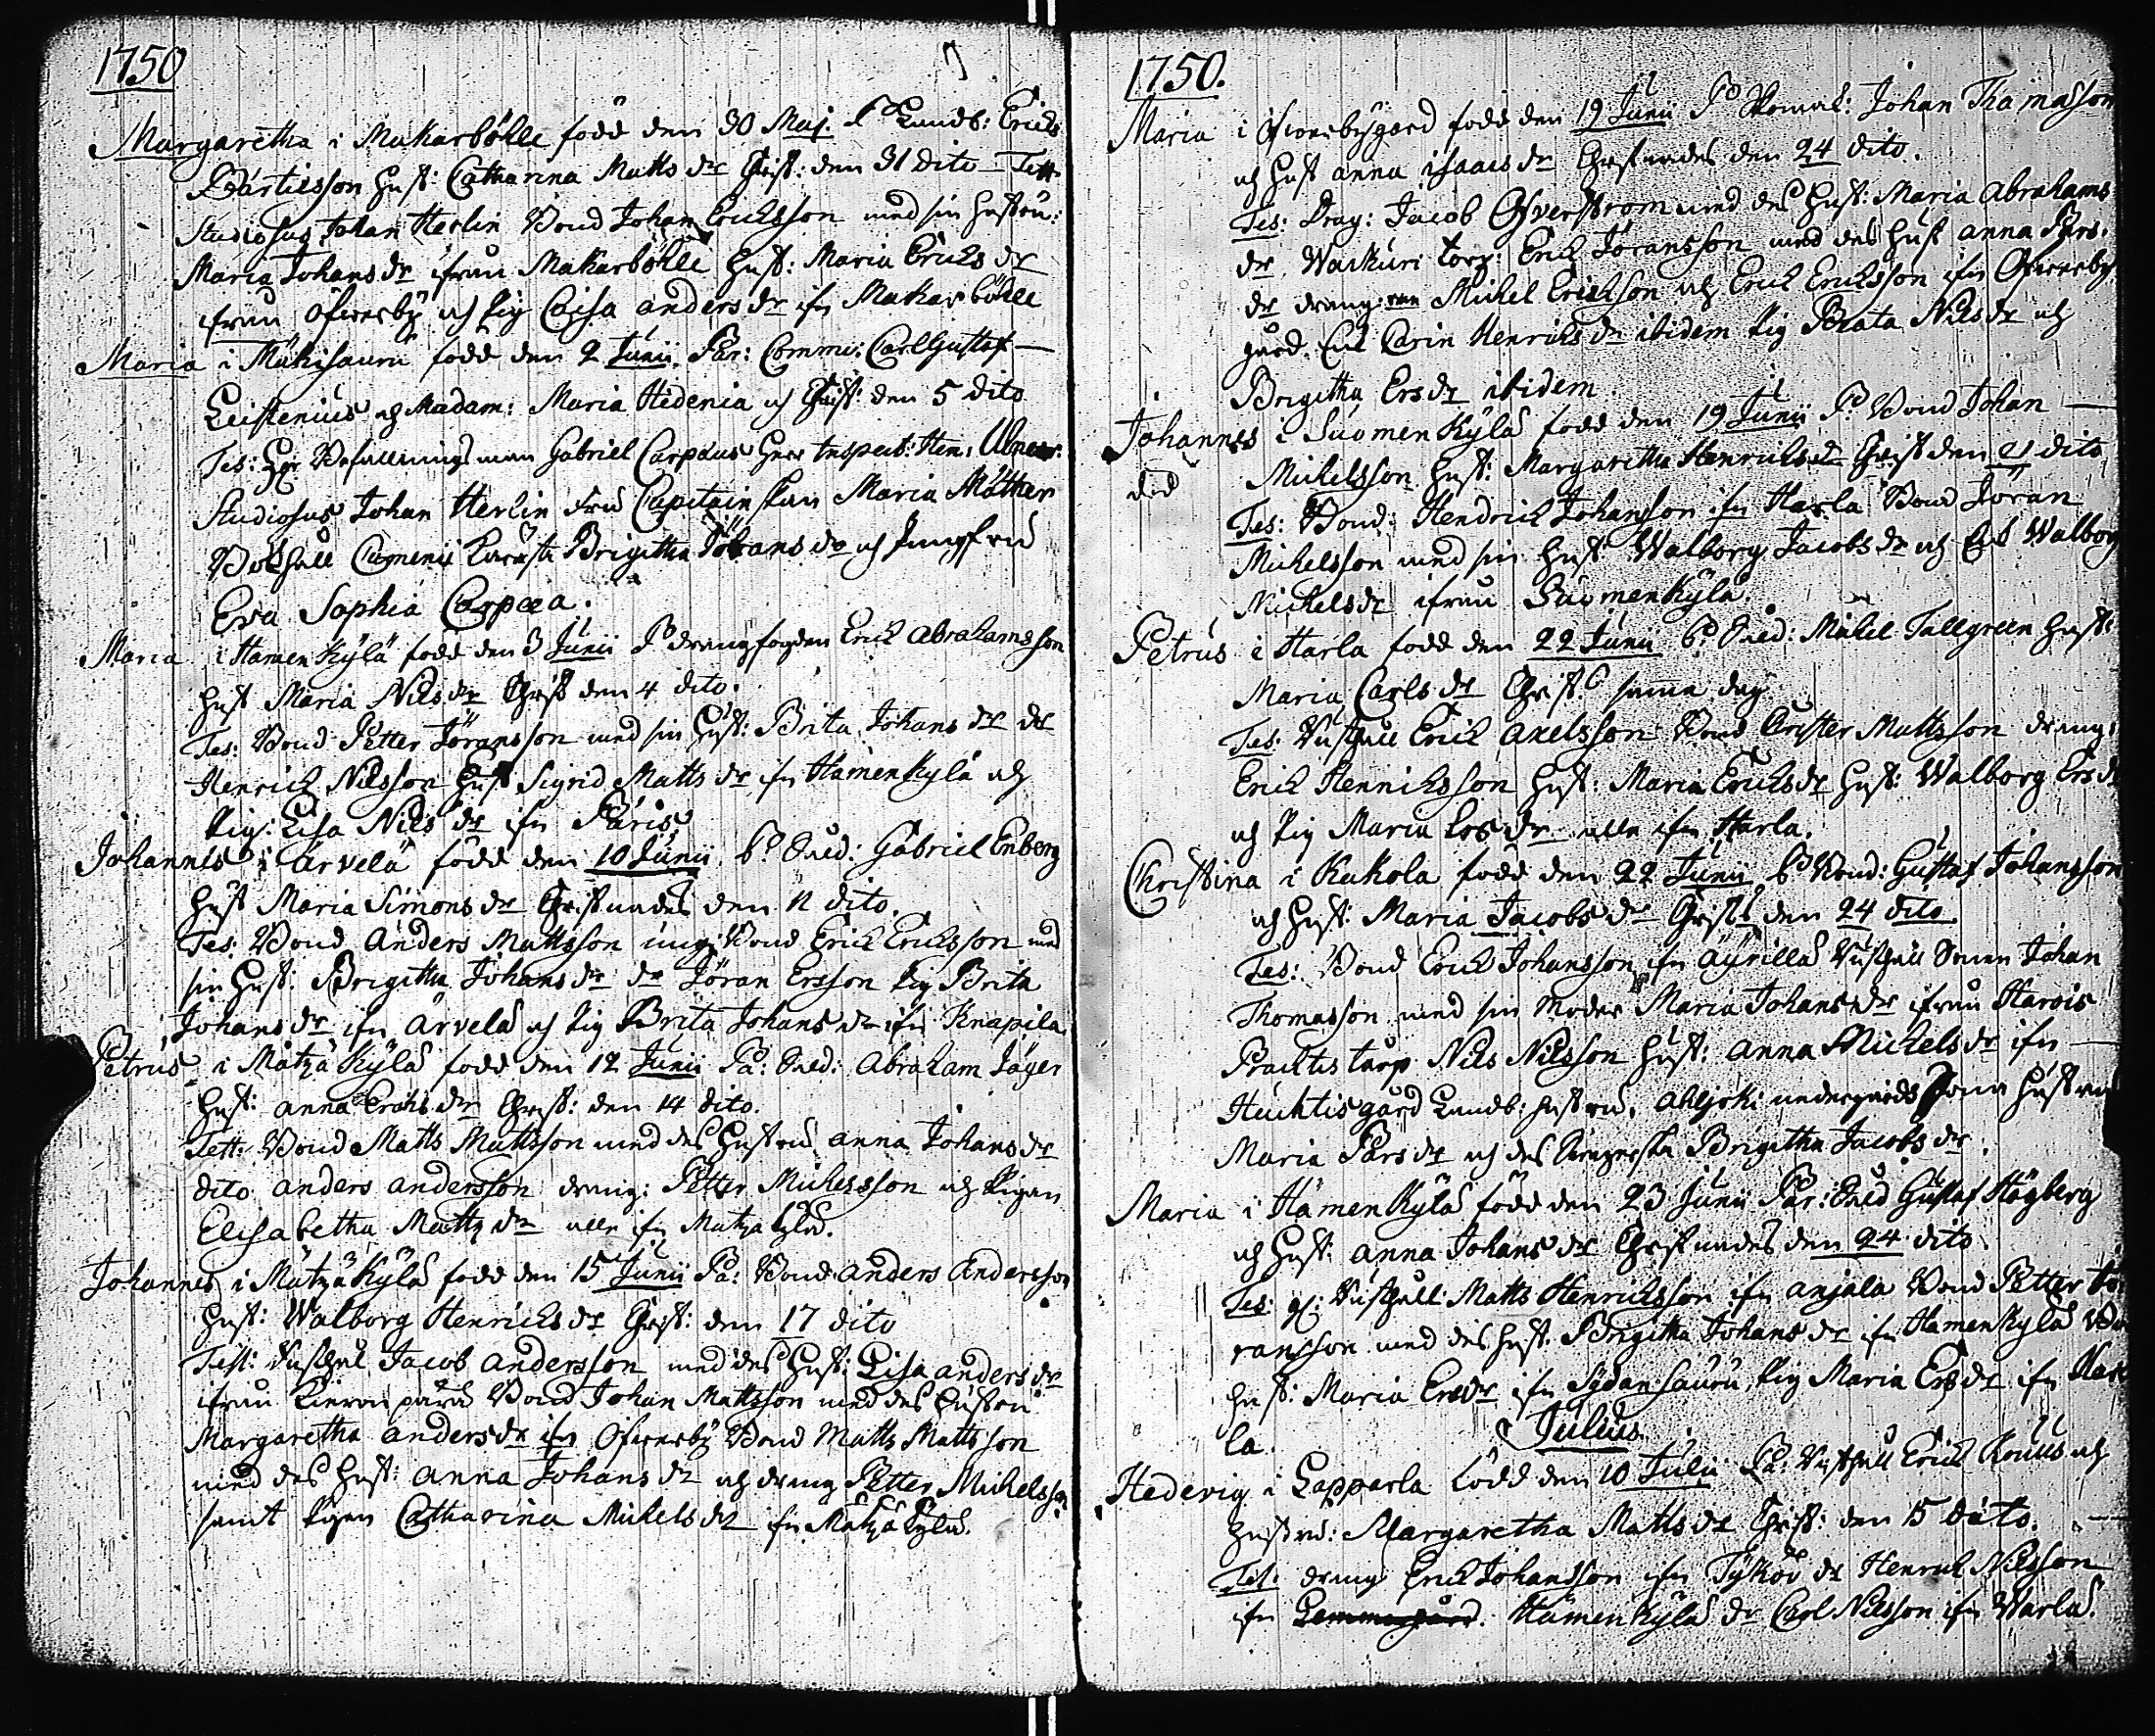 1750
Margaretha i Makarbölle född den 30 Maj. P Landb: Erich
Bärtilsson Hust: Catharina Matts dr Christ: den 31 dito – Test.
Studiosus Johan Herlin Bond Johan Ericksson med sin hustru:
Maria Johans dr ifrån Makarbölle Hust: Maria Ericks dr
ifrån Öfwerby och Pig Caisa anders dr ifn Makarbölle
Maria i Mäkisauru född den 2 Junii. Får: Commi: Carl Gustaf
Leistenius och Madam: Maria Hidenia och Christ: den 5 dito
Tes: Hr Befallningsman Gabriel Carpæus Herr Inspect: Hen:
Studiosus Johan Herlin Fru Capitainskan Maria Möther
Comenii Brigitha Jörans dr och Jungfru
Eva Sophia Carpæa.
Maria i Hämenkylä född den 3 Junii P drengfogden Erick Abrahamsson
Hust Maria Nils dr Christ den 4 dito.
Tes: Bond Petter Jöransson med sin Hust: Brita Johans dr dr
Henrich Nilsson Hust Sigrid Matts dr ifn Hämenkylä och
Pig: Lisa Nils dr ifn Päris
Johannes i Ärvelä född den 10 Junii P: Sold: Gabriel Enberg
Hust Maria Simons dr Christnades den 11 dito.
Tes: Bond Anders Mattsson ung: Bond Erick Ericksson med
sin Hust: Brigitha Johans dr dr Jöran Ersson Pig Brita
Johans dr ifn Ärvelä och Pig Brita Johans dr ifn Knapila
Petrus i Mätzäkylä född den 12 Junii Få: Sold: Abraham Jäger
Hust: anna Ericks dr Christ: den 14 dito.
Test: Bond Matts Mattsson med des Hustru anna Johans dr
dito anders andersson dreng: Petter Mickelsson och Pigan
Elisabetha Matts dr alla ifn Mätzäkylä.
Johannes i Mätzäkylä född den 15 Junii Få: Bond: anders Andersson
Hust: Walborg Henricks dr Christ: den 17 dito
Test: Rusthål Jacob andersson med des Hust: Lisa anders dr
ifrån Bond Johan Mattsson med des Hustru
Margaretha anders dr ifn Öfwerby Bond Matts Mattsson
med des Hust: anna Johans dr och dreng Petter Mickelsson
samt Pigan Catharina Mickels dr ifn Mätzäkylä.
1750.
Maria i Öfwerbygård född den 19 Junii P Skomak: Johan Thomasson
och Hust anna isaacs dr Christnades den 24 dito.
Tes: Drag: Jacob Öfverström med des Hust: Maria Abrahams
dr, torp: Erick Jöransson med des Hust anna Pärs
dr dreng: Michel Erickson och Erick Ericksson ifn Öfwerby
gård. Enk Carin Henricks dr ibidem Pig Beata Nils dr och
Brigitha Ers dr ibidem.
Johannes i Suomenkylä född den 19 Junii P: Bond Johan
död Mickelsson Hust: Margaretha Henricks dr Christ den 21 dito
Tes: Bond: Hendrich Johansson ifn Harla Bond Jöran
Mickelsson med sin Hust Walborg Jacobs dr och Enk Walborg
Michels dr ifrån Suomenkylä.
Petrus i Harla född den 22 Junii P: Sold: Mickel Tallgreen Hust:
Maria Carls dr Christ: samma dag
Tes: Rusthåll Erick axelsson Bond Christer Mattsson dreng:
Erick Henricksson Hust: Maria Ericks dr Hust: Walborg Ers dr
och Pig Maria Ers dr alla ifn Harla.
Christina i Kukola född den 22 Junii P Bond: Gustaf Johansson
och Hust: Maria Jacobs dr Christ: den 24 dito.
Tes: Bond Erick Johansson ifn Äyrilla Rusthåll Sonen Johan
Thomasson med sin Moder Maria Johans dr ifrån Harvis
torp Nils Nilsson Hust: anna Mickels dr ifn
Huhtisgård Landb: hustru, Ahljoki nedergårds Hustru
Maria Pärs dr och des Brigitha Jacobs dr.
Maria i Hämenkylä född den 23 Junii Får: Sold Gustaf Högberg
och Hust: anna Johans dr Christnades den 24 dito.
Tes: Rusthåll: Matts Henricksson ifn anjala Bond Petter Jö-
ransson med des Hust. Brigitha Johans dr ifn Hämenkylä
Hust: Maria Ers dr ifn Sydänsauru, Pig Maria Ers dr ifn Har
la.
Julius.
Hedevig i Lapparla född den 10 Julii Få: Rusthåll Erick Kruus och
Hustru: Margaretha Matts dr Christ: den 15 dito.
Tes: dreng Erick Johansson ifn Tyskö dr Henrick Nilsson
ifn Hämenkylä dr Carl Nilsson ifn Warla.